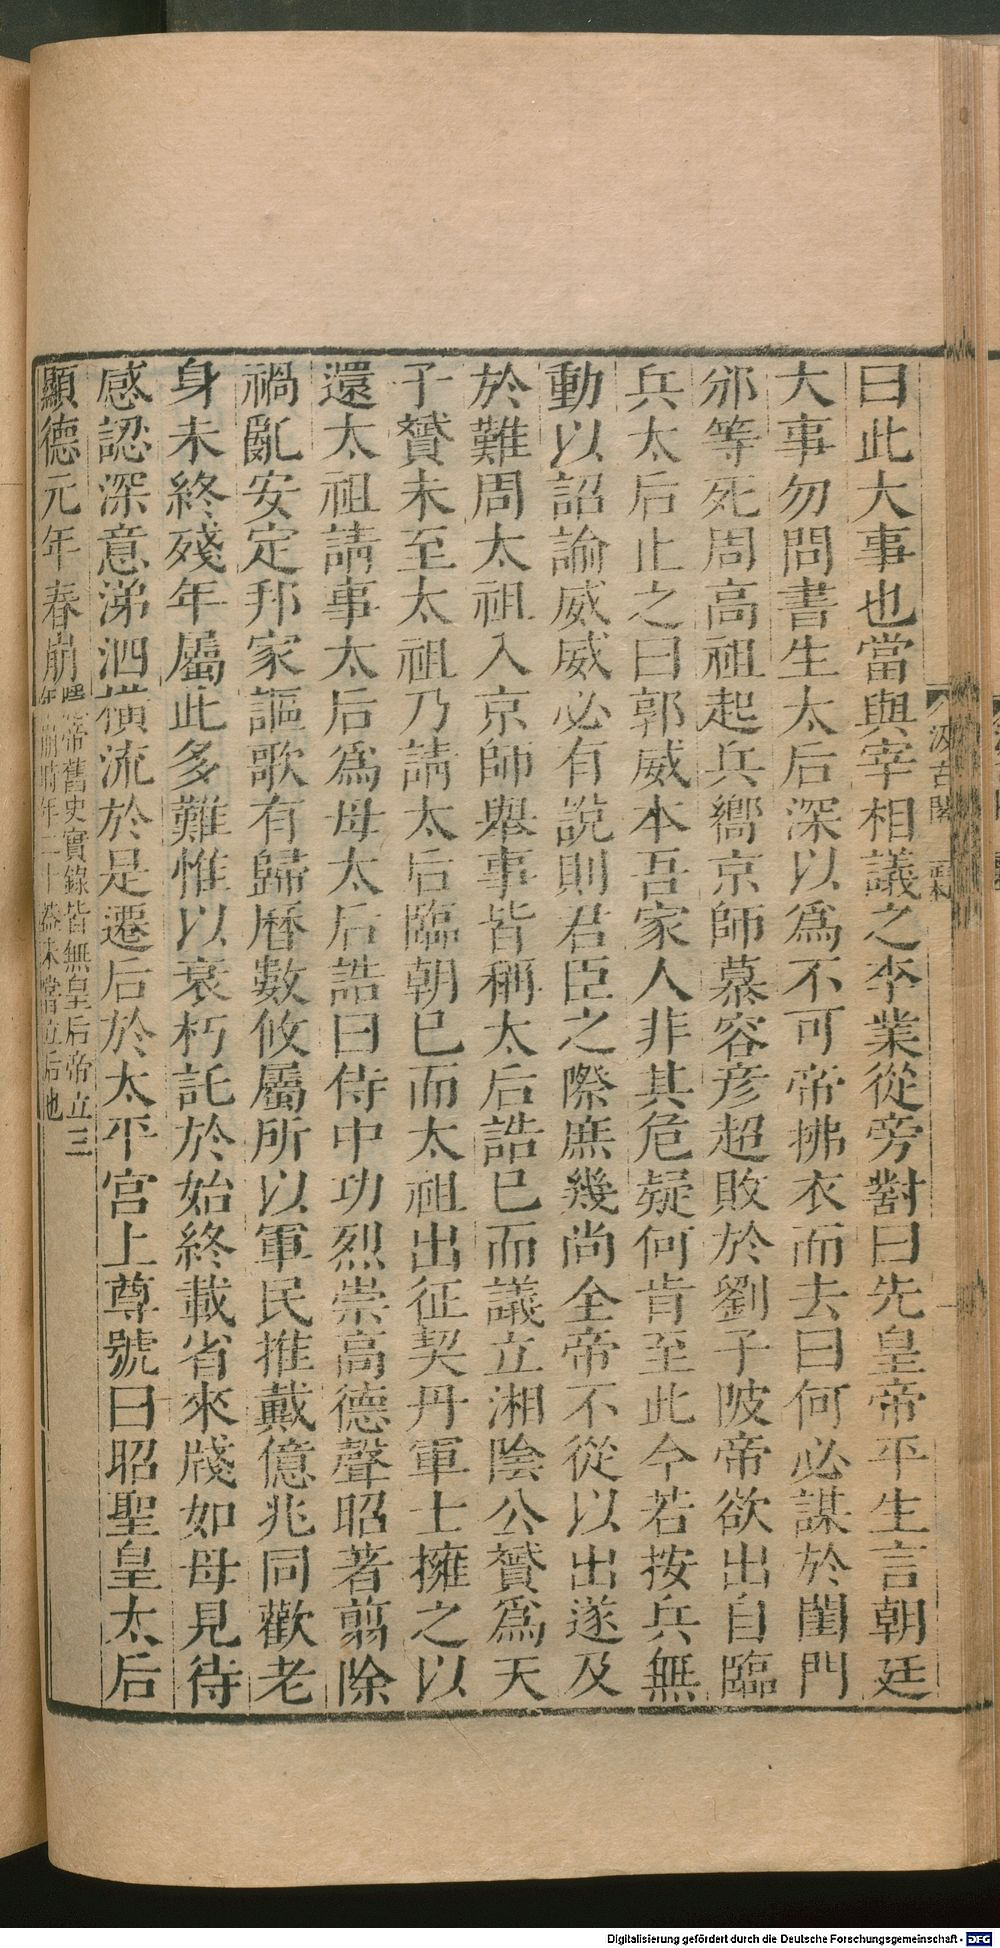 曰此大事也當與宰相議之李業從旁對曰先皇帝平生言朝廷
大事勿問書生太后深以爲不可帝拂衣而去曰何必謀於閨門
邠等死周高祖起兵嚮京師慕容彦超敗於劉子陂帝欲出自臨
兵太后止之曰郭威本吾家人非其危疑何肯至此今若按兵無
動以詔諭威威必有說則君臣之際庶幾尚全帝不從以出遂及
於難周太祖入京師舉事皆稱太后誥已而議立湘陰公贇爲天
子贇未至太祖乃請太后臨朝已而太祖出征契丹軍士擁之以
還太祖請事太后爲母太后誥曰侍中功烈崇高德聲昭著翦除
禍亂安定邦家謳歌有歸曆數攸屬所以軍民推戴億兆同歡老
身未終殘年屬此多難惟以衰朽託於始終載省來牋如母見待
感認深意涕泗橫流於是遷后於太平宮上尊號曰昭聖皇太后
顯德元年春崩
隱帝舊史實錄皆無皇后帝立三
年崩時年二十蓋未嘗立后也
汲古閣
Digitalisierung gefördert durch die Deutsche Forschungsgemeinschaft - DFG